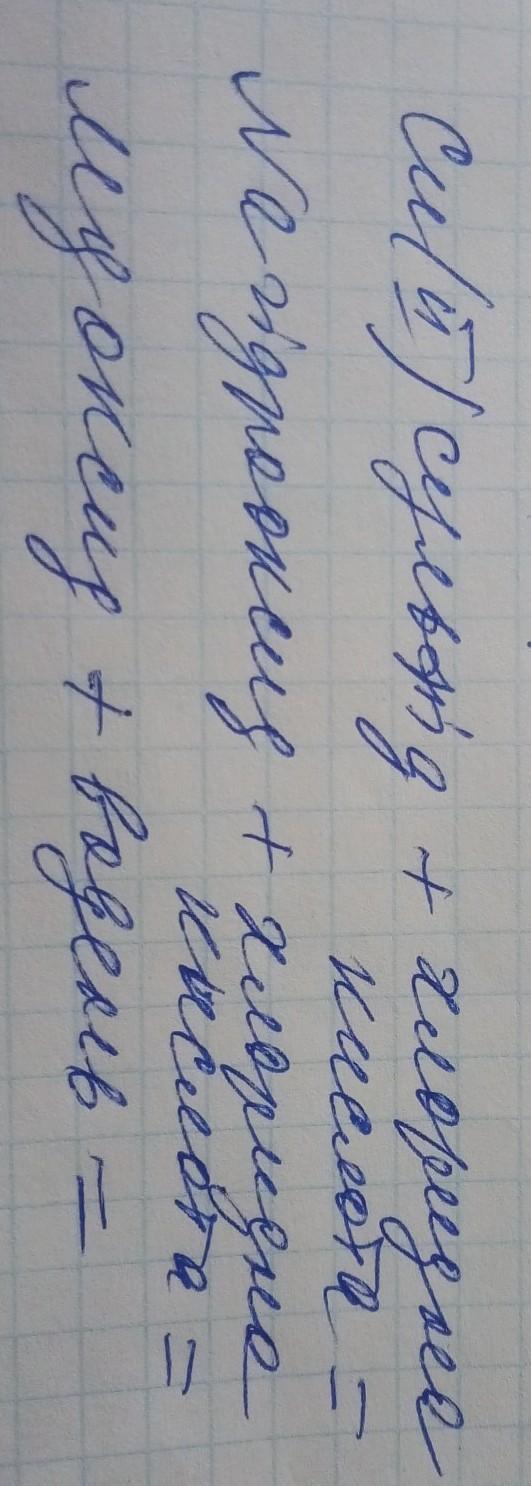 Cu(II) сульфід + хлоридна
кислота =
Na гідроксид + хлоридна
кислота =
Mg оксид + водень =